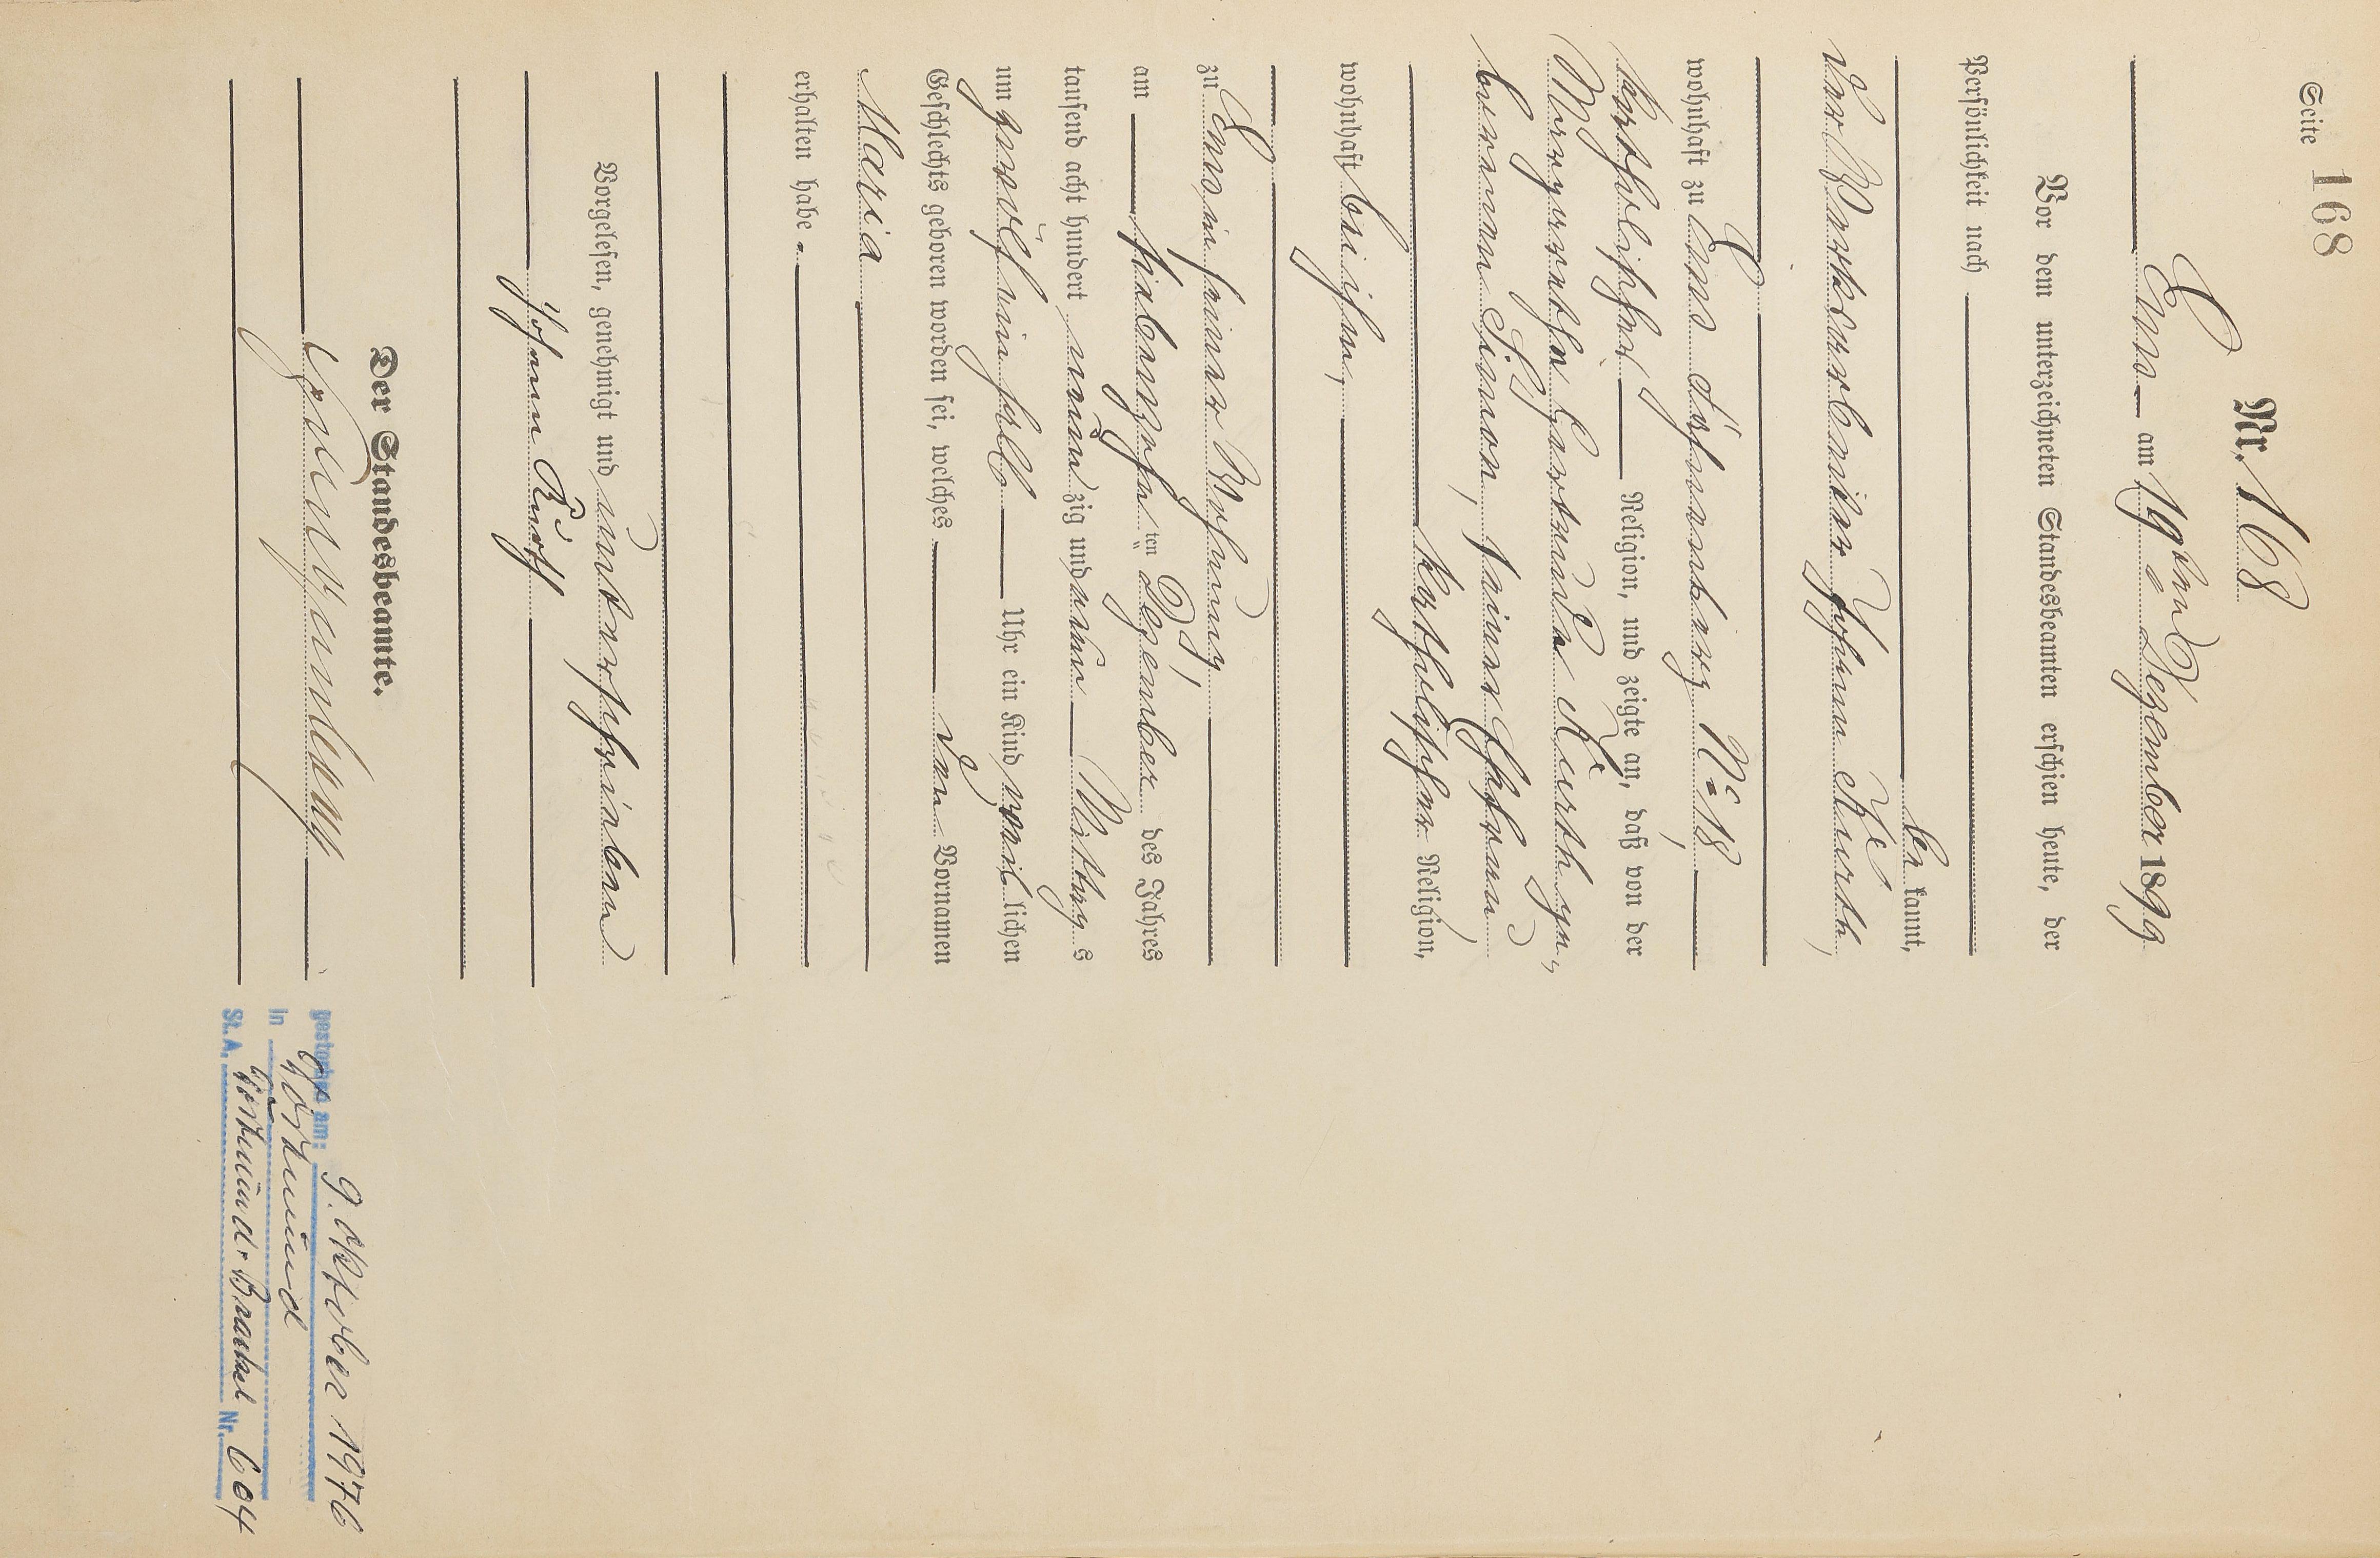 Seite 168
Nr. 168
Ems am 19ten Dezember 1899
Vor dem unterzeichneten Standesbeamten erschien heute, der
Persönlichkeit nach
be kannt,
der Parkarbeiter Johann Kurth,
wohnhaft zu Ems, No 18
katholischer Religion, und zeigte an, daß von der
Margarethe Gertrude Kurth ge¬
borenen Simon, seiner Ehefrau
katholischer Religion,
wohnhaft bei ihm,
zu Ems, in seiner Wohnung,
am siebenzehn ten Dezember des Jahres
tausend acht hundert neun zig und neun Mittag s
um zwölfeinhalb Uhr ein Kind weib lichen
Geschlechts geboren worden sei, welches den Vornamen
Maria
erhalten habe.
Vorgelesen, genehmigt und unterschrieben
Johann Kurth
Der Standesbeamte.
gestorben am: 9. Oktober 1976
in Dortmund
St. A. Dortmund-Brackel Nr. 604